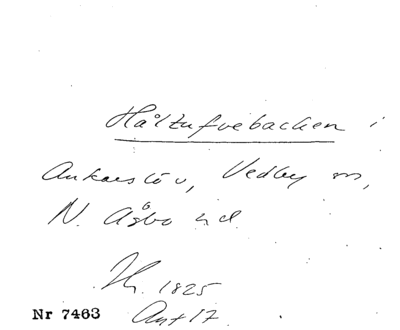 Håltufvebacken i
Ankarslöv, Vedby sn,
N. Åsbo hd
1825
Nr 7463 Ant 17